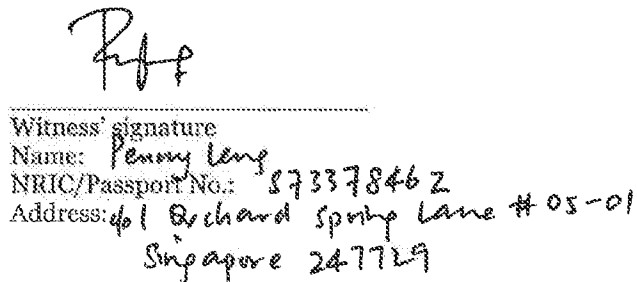 Witness' signature
Name: Penny Leng
NRIC/Passport No.: S7337846Z
Address: 401 Orchard Spring Lane # 05-01
Singapore 247729